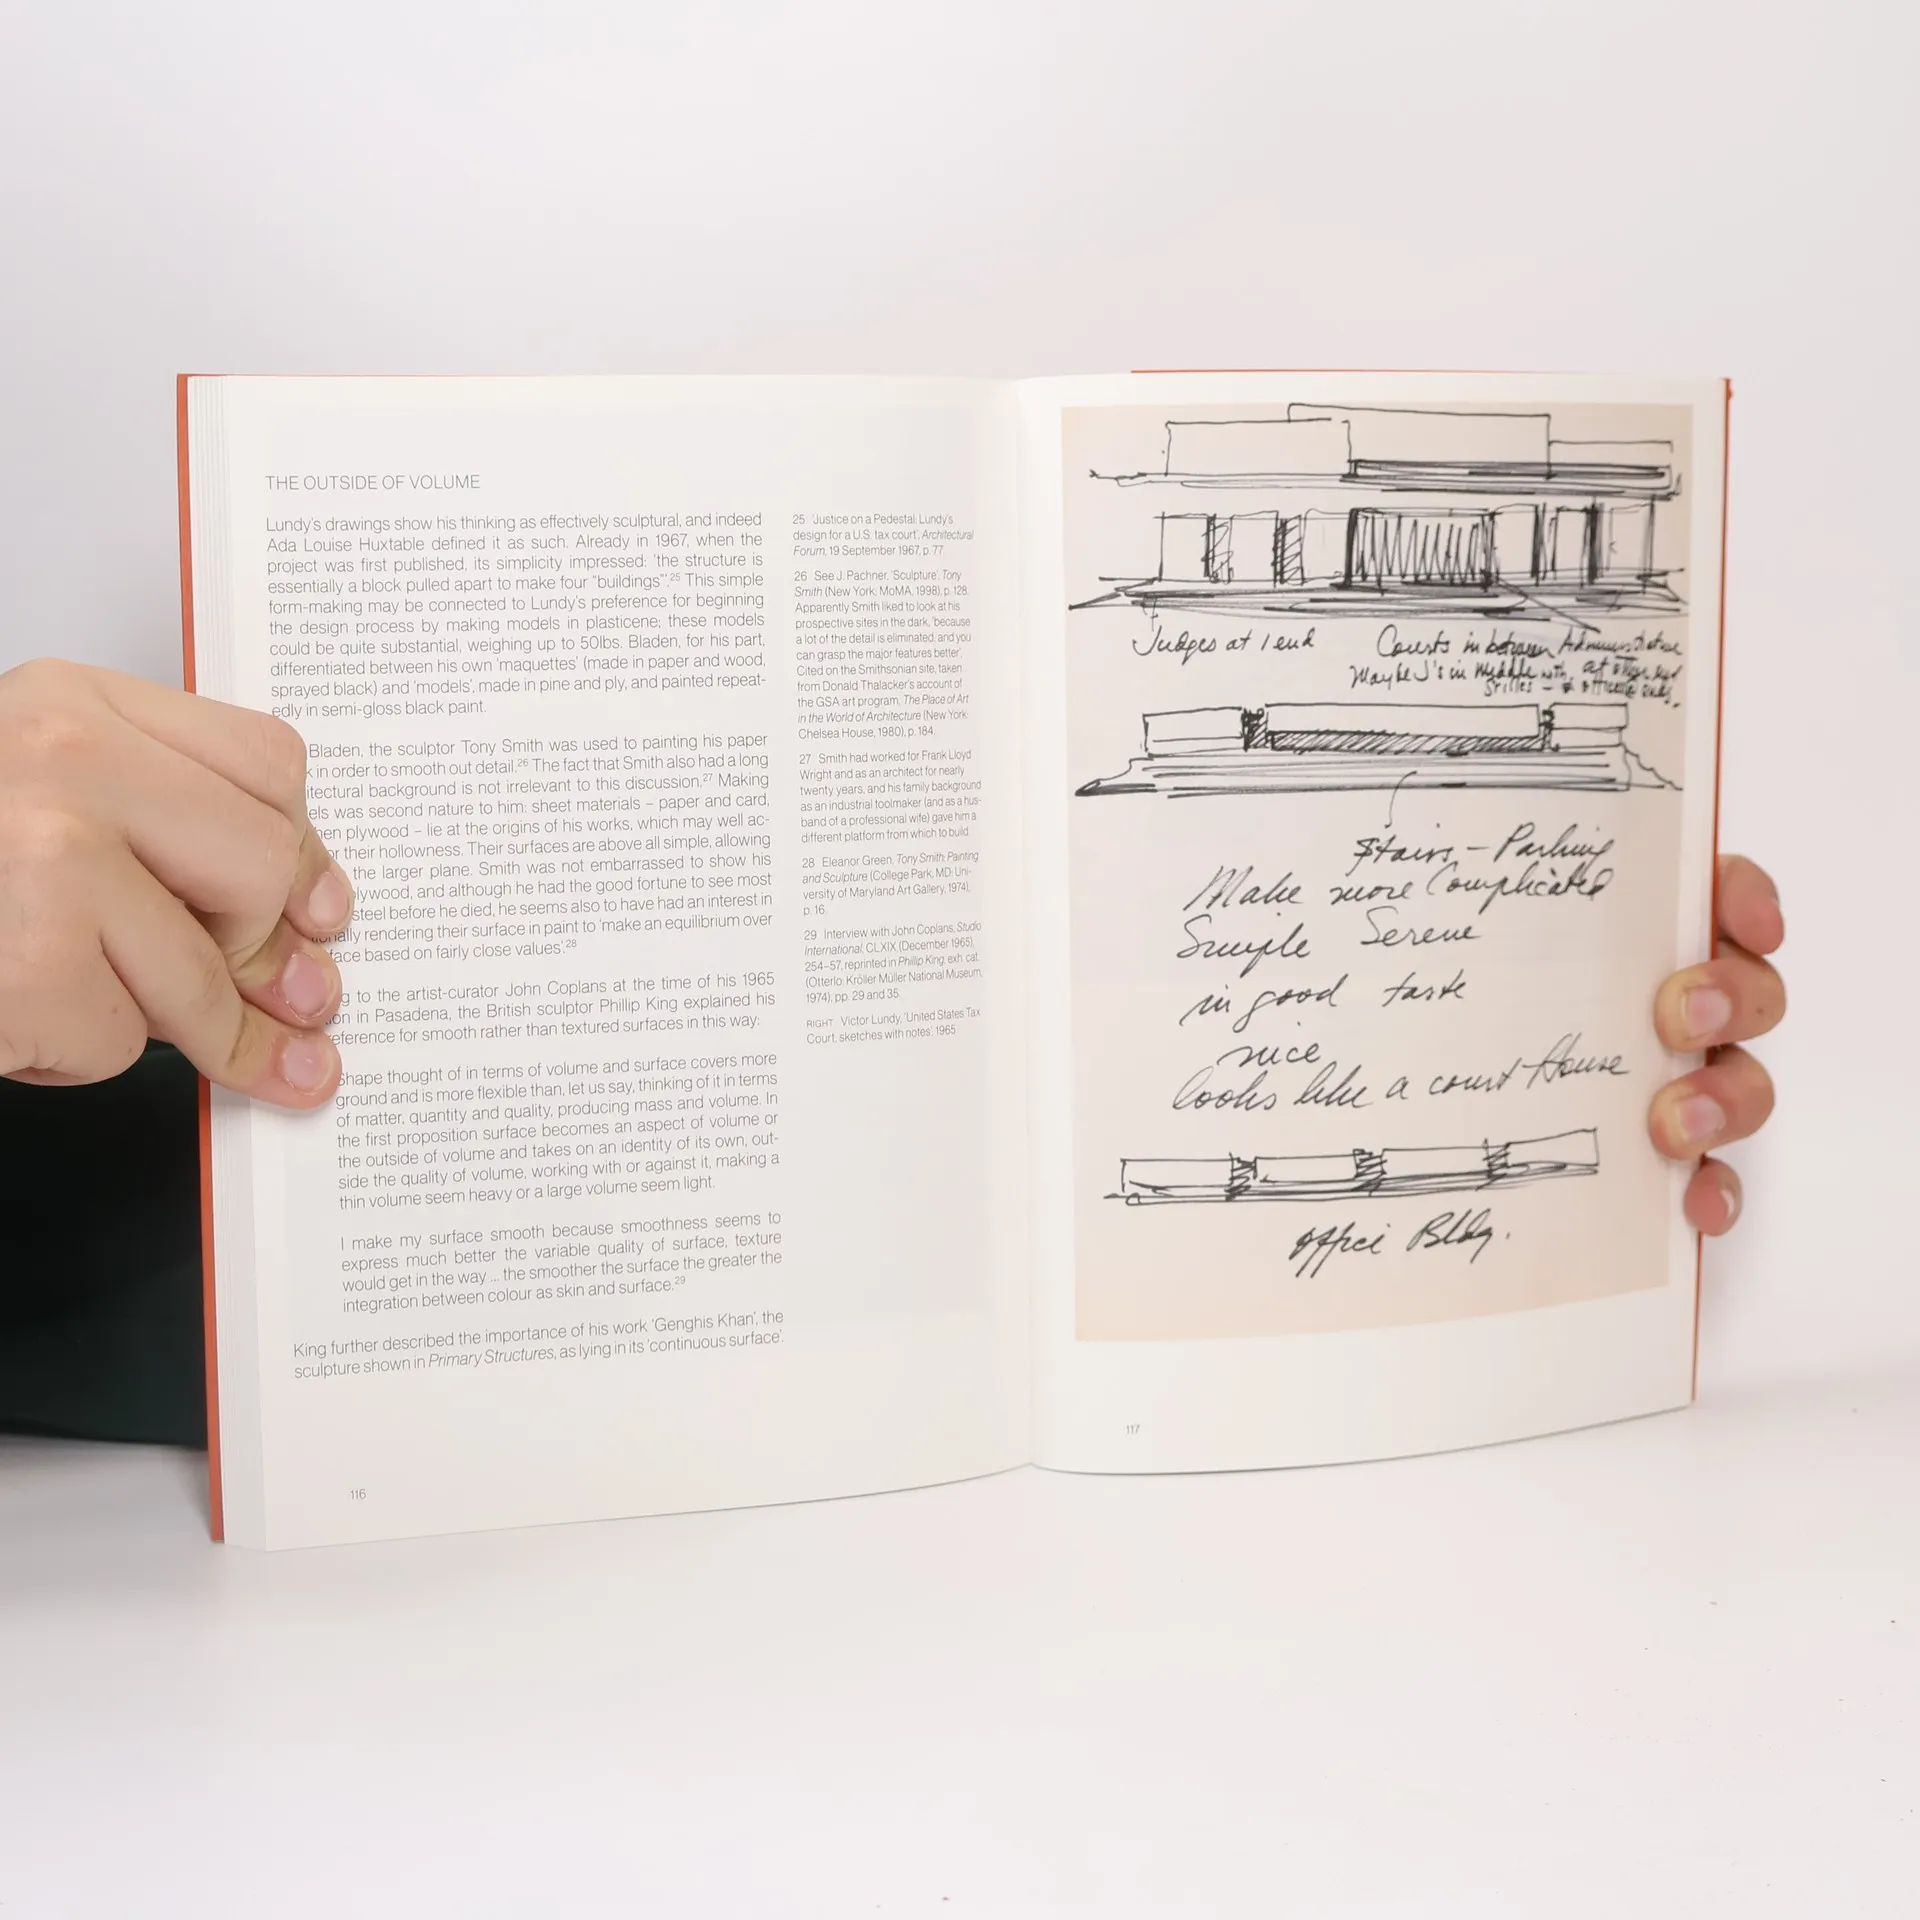 THE OUTSIDE OF VOLUME
Lundy's drawings show his thinking as effectively sculptural, and indeed
Ada Louise Huxtable defined it as such. Already in 1967, when the
project was first published, its simplicity impressed: 'the structure is
essentially a block pulled apart to make four "buildings"'.25 This simple
form-making may be connected to Lundy's preference for beginning
the design process by making models in plasticene; these models
could be quite substantial, weighing up to 50lbs. Bladen, for his part,
differentiated between his own 'maquettes' (made in paper and wood,
sprayed black) and 'models', made in pine and ply, and painted repeat-
edly in semi-gloss black paint.
Bladen, the sculptor Tony Smith was used to painting his paper
in order to smooth out detail.26 The fact that Smith also had a long
itectural background is not irrelevant to this discussion.27 Making
els was second nature to him: sheet materials – paper and card,
hen plywood – lie at the origins of his works, which may well ac-
or their hollowness. Their surfaces are above all simple, allowing
the larger plane. Smith was not embarrassed to show his
lywood, and although he had the good fortune to see most
steel before he died, he seems also to have had an interest in
nally rendering their surface in paint to 'make an equilibrium over
face based on fairly close values'.28
g to the artist-curator John Coplans at the time of his 1965
on in Pasadena, the British sculptor Phillip King explained his
eference for smooth rather than textured surfaces in this way:
Shape thought of in terms of volume and surface covers more
ground and is more flexible than, let us say, thinking of it in terms
of matter, quantity and quality, producing mass and volume. In
the first proposition surface becomes an aspect of volume or
the outside of volume and takes on an identity of its own, out-
side the quality of volume, working with or against it, making a
thin volume seem heavy or a large volume seem light.
I make my surface smooth because smoothness seems to
express much better the variable quality of surface, texture
would get in the way ... the smoother the surface the greater the
integration between colour as skin and surface.29
King further described the importance of his work 'Genghis Khan', the
sculpture shown in Primary Structures, as lying in its 'continuous surface'.
116
25 'Justice on a Pedestal: Lundy's
design for a U.S. tax court', Architectural
Forum, 19 September 1967, p. 77.
26 See J. Pachner, 'Sculpture', Tony
Smith (New York: MoMA, 1998), p. 128.
Apparently Smith liked to look at his
prospective sites in the dark, 'because
a lot of the detail is eliminated, and you
can grasp the major features better'.
Cited on the Smithsonian site, taken
from Donald Thalacker's account of
the GSA art program, The Place of Art
in the World of Architecture (New York:
Chelsea House, 1980), p. 184.
27 Smith had worked for Frank Lloyd
Wright and as an architect for nearly
twenty years, and his family background
as an industrial toolmaker (and as a hus-
band of a professional wife) gave him a
different platform from which to build.
28 Eleanor Green, Tony Smith: Painting
and Sculpture (College Park, MD: Uni-
versity of Maryland Art Gallery, 1974),
p. 16.
29 Interview with John Coplans, Studio
International, CLXIX (December 1965),
254–57, reprinted in Phillip King, exh. cat.
(Otterlo: Kröller Müller National Museum,
1974), pp. 29 and 35.
RIGHT Victor Lundy, 'United States Tax
Court, sketches with notes', 1965
Judges at 1 end
Courts in between Administrative
Maybe J's in middle with at
Grilles – offices
Stairs – Parking
Make more Complicated
Simple Serene
in good taste
nice
looks like a court House
Office Bldg.
117